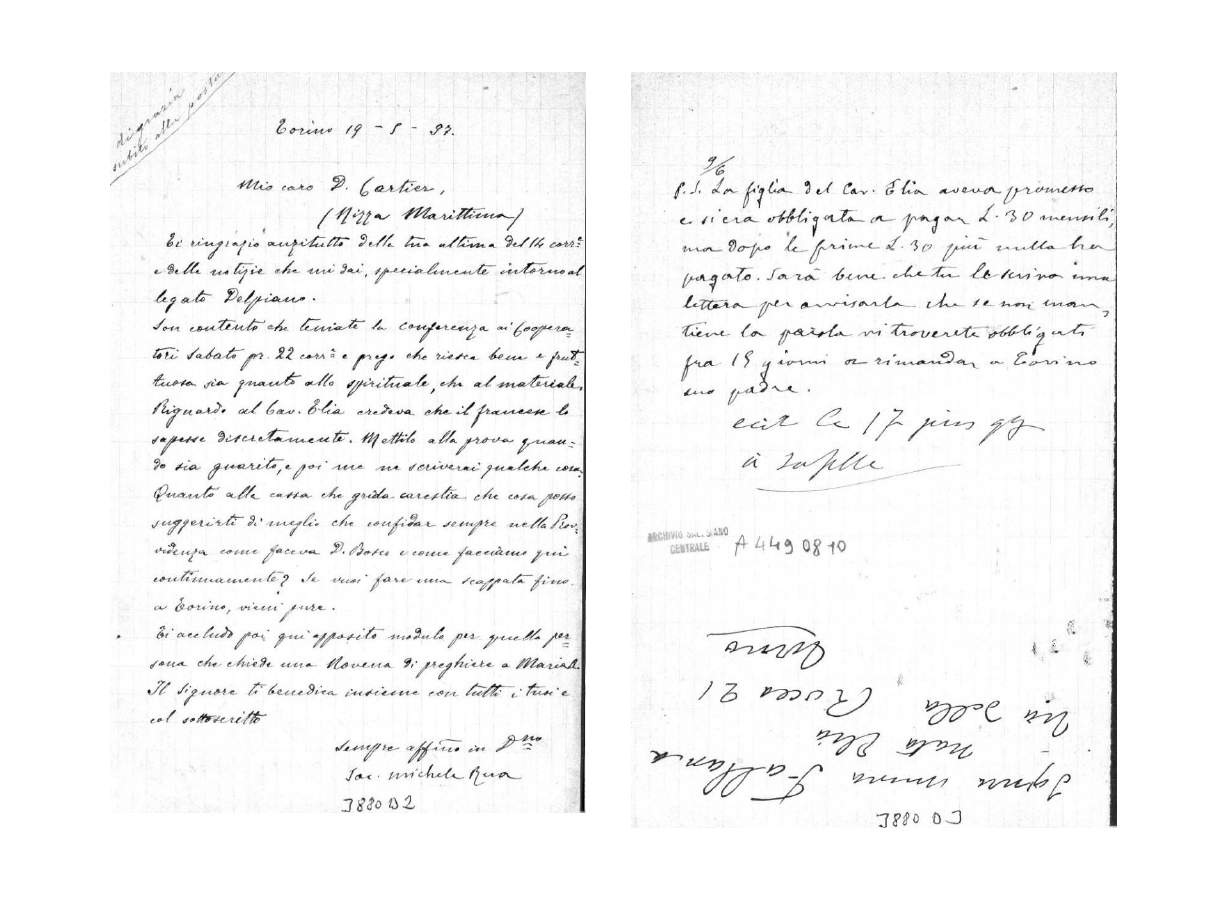 di grazia
subito alla posta
Torino 19 - 5 - 97.
Mio caro D. Cartier,
(Nizza Marittima)
Ti ringrazio anzitutto della tua ultima del 14 corr.e
e delle notizie che mi dai, specialmente intorno al
legato Delpiano.
Son contento che teniate la conferenza ai Coopera-
tori sabato pr. 22 corr.e e prego che riesca bene e frut-
tuosa sia quanto allo spirituale, che al materiale.
Riguardo al Cav. Elia credeva che il francese lo
sapesse discretamente. Mettilo alla prova quan-
do sia guarito, e poi me ne scriverai qualche cosa.
Quanto alla cassa che grida carestia che cosa posso
suggerirti di meglio che confidar sempre nella Prov-
videnza come faceva D. Bosco e come facciamo qui
continuamente? Se vuoi fare una scappata fino
a Torino, vieni pure.
Ti accludo poi qui apposito modulo per quella per
sona che chiede una Novena di preghiere a Maria A.
Il Signore ti benedica insieme con tutti i tuoi e
col sottoscritto
Sempre affmo in Dno
Sac. Michele Rua
3880 D2
9/6
P.S. La figlia del Cav. Elia aveva promesso
e si era obbligata a pagar L. 30 mensili,
ma dopo le prime L. 30 più nulla ha
pagato. Sarà bene che tu le scriva una
lettera per avvisarla che se non man-
tiene la parola vi troverete obbligati
fra 15 giorni a rimandar a Torino
suo padre.
ecit le 17 juin 97
ARCHIVIO SALESIANO
CENTRALE
A 449 08 10
Signora Emma Fallana
nata Elia
Via della Rocca 21
Torino
3880 D3